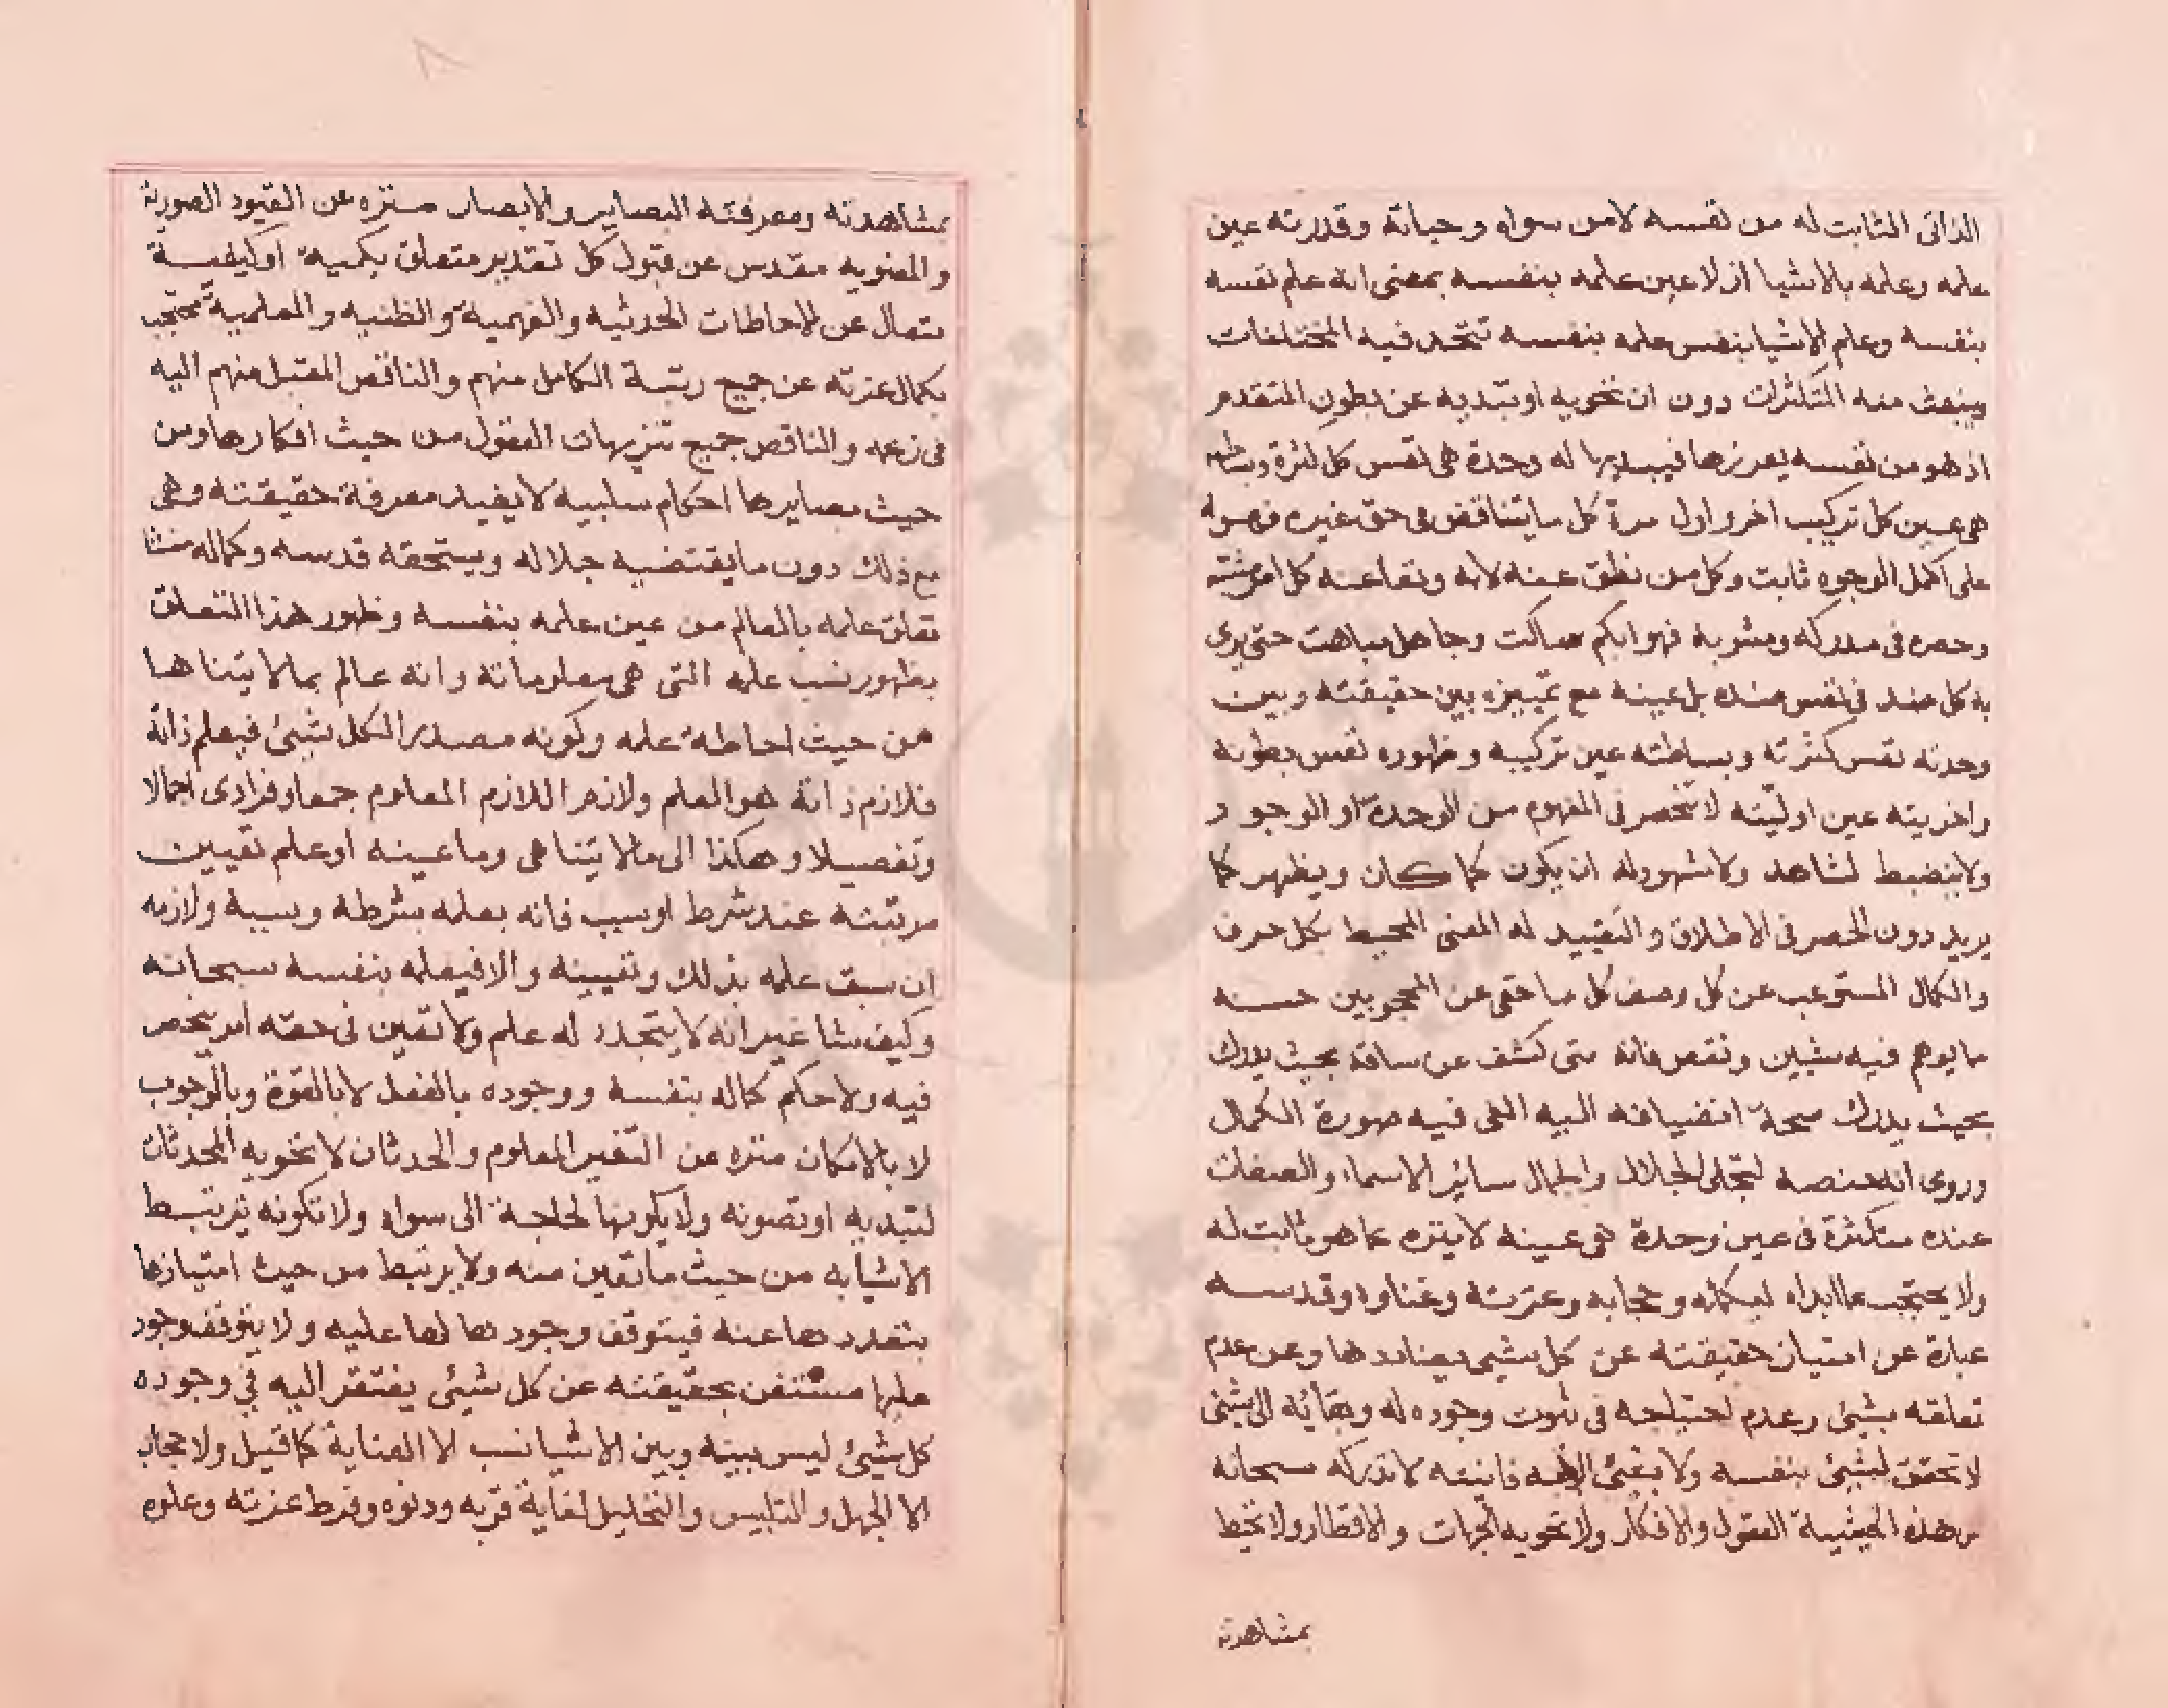 الذاتى الثابت له من نفسه لا من سواه وحياته وقدرته عين
علمه وعلمه بالاشيا ازلا عين علمه بنفسه بمعنى انه علم نفسه
بنفسه وعلم الاشيا بنفس علمه بنفسه تتحد فيه المختلفات
وينبعث منه المتكثرات دون ان تحويه او تبديه عن بطون المتقدم
اذ هو من نفسه يعرزها فيبديها له وحدة هى نفس كل كثرة وبساطه
هى عين كل تركيب اخر واول مرة كل ما يتناقض فى حق غيره فهو له
على اكمل الوجوه ثابت وكل من نطق عنه لابه ونفا عنه كل امر مشتبه
وحصره فى مدركه ومشوبه فهو ابكم ساكت وجاهل مباهت حتى يرى
به كل ضد فى نفس ضده بل عينه مع تمييزه بين حقيقته وبين
وحدته نفس كثرته وبساطته عين تركيبه وظهوره نفس بطونه
واخريته عين اوليته لا تنحصر فى المفهوم من الوحدة او الوجود
ولا ينضبط لشاهد ولا مشهود له ان يكون كما كان ويظهر كما
يريد دون الحصر فى الاطلاق والتقييد له المعنى المحيط بكل حرف
والكمال المستوعب عن كل وصف كل ما خفى عن المحجوبين حسنه
ما يوهم فيه شين ونقص فانه متى كشف عن ساقه بحيث يدرك
بحيث يدرك صحة انضيافه اليه الفى فيه صورة الكمال
وروى انه منصه لتجلى الجلال والجمال سائر الاسماء والصفات
عنده متكثرة فى عين وحدة هى عينه لا ينزه عما هو ثابت له
ولا يحتجب عما ابداه ليكمله وحجابه وعزته وغناوه وقدسه
عبارة عن امتياز حقيقته عن كل شيى يضاددها وعن عدم
تعلقه بشيئ وعدم احتياجه فى ثبوت وجوده له وبقائه الى شيئ
لا تحقق لشيئ بنفسه ولا بشيئ الا به فانيته لا تدركه سبحانه
من هذه الحيثية العقول والافكار ولا تحويه الجهات والاقطار ولا تحيط
بمشاهدته
بمشاهدته ومعرفته البصاير والابصار منزه عن القيود الصورية
والمعنويه مقدس عن قبول كل تقدير متعلق بكمية او كيفية
متعال عن الاحاطات الحدثيه والفهمية والظنيه والعلمية محتجب
بكمال عزته عن جميع رتبة الكامل منهم والناقص المقبل منهم اليه
فى زعمه والناقص جميع تنزيهات العقول من حيث افكارها ومن
حيث بصايرها احكام سلبيه لا يفيد معرفة حقيقته وهى
مع ذلك دون ما يقتضيه جلاله ويستحقه قدسه وكماله منشا
تعلق علمه بالعالم من عين علمه بنفسه وظهور هذا التعلق
بظهور نسب علمه التى هى معلوماته وانه عالم بما لا يتناها
من حيث احاطة علمه وكونه مصدر الكل شيئ فيعلم ذاته
فلازم ذاته هو العلم ولازم اللازم المعلوم جمعا وفرادى اجمالا
وتفصيلا وهكذا الى ما لا يتناهى وما عينه او علم تعيين
مرتبته عند شرط او سبب فانه بعلمه بشرطه وسببه ولازمه
ان سبق علمه بذلك وتعيينه والا فيعلمه بنفسه سبحانه
وكيف شا غير انه لا يتجدد له علم ولا تعين فى حقه امر ينحصر
فيه ولا حكم كماله بنفسه ووجوده بالفعل لا بالقوة وبالوجوب
لا بالامكان منزه عن التغير المعلوم والحدثان لا تحويه المحدثات
لتبديه او تصونه ولا يكونها لحاجة الى سواه ولا تكونه ترتبط
الاشيا به من حيث ما تعين منه ولا يرتبط من حيث امتيازها
بتعددها عنه فيتوقف وجودها لها عليه ولا يتوقف وجود
عليها مستغن بحقيقته عن كل شيئ يفتقر اليه في وجوده
كل شيئ ليس بينه وبين الاشيا نسب الا العناية كما قيل ولا حجاب
الا الجهل والتلبيس والتخليل لغاية قربه ودنوه وفرط عزته وعلوه